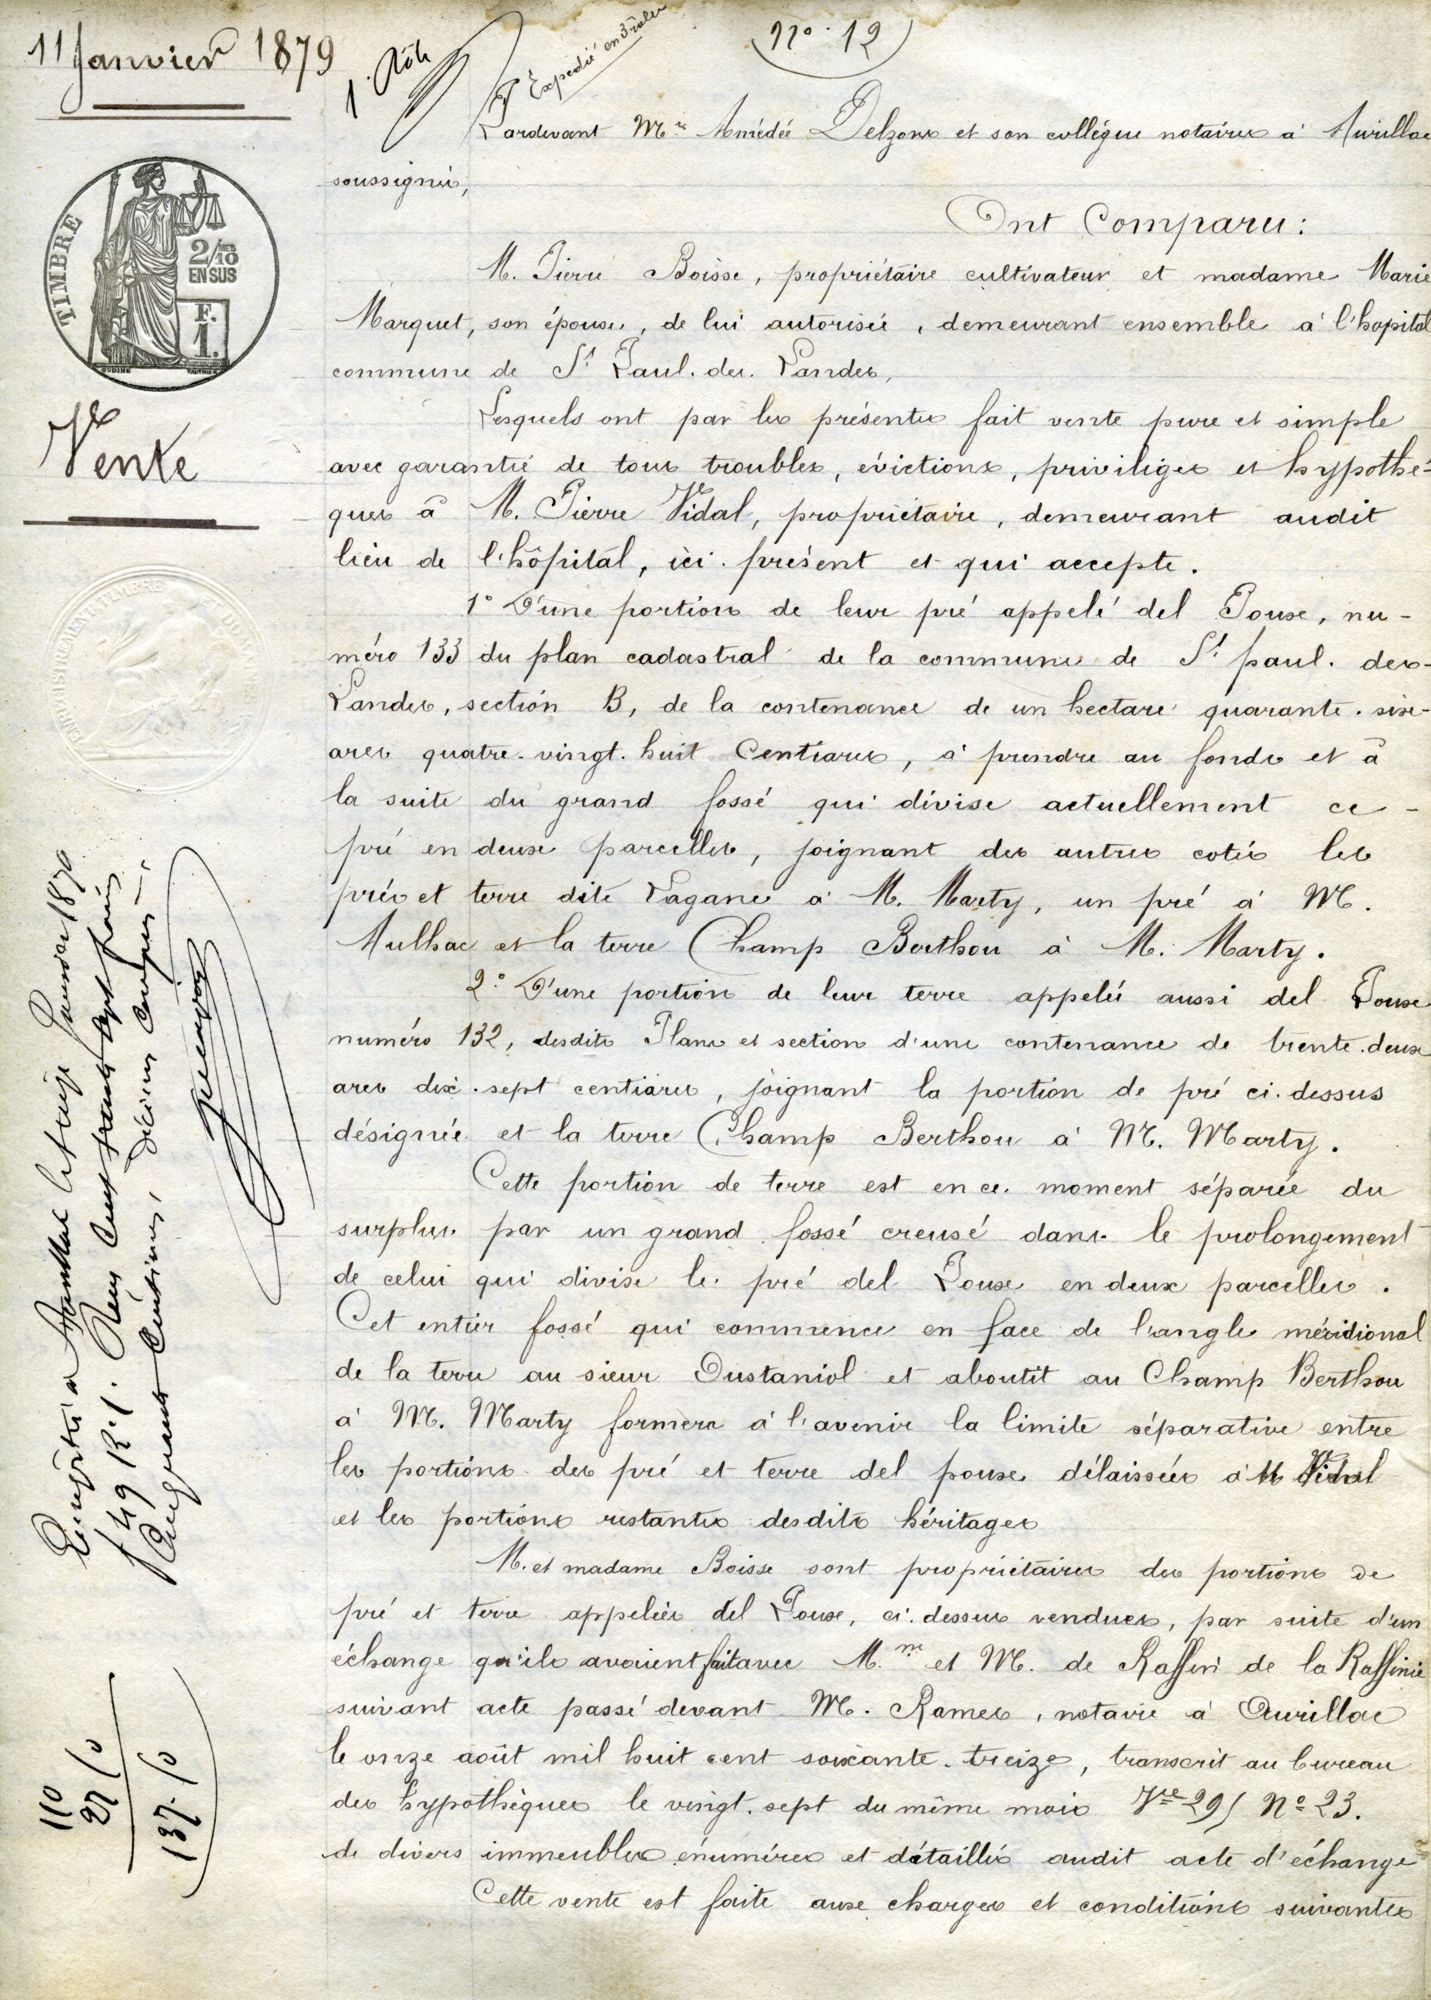 11 Janvier 1879
1. Rôle
Expédié en 3 rôles
N° 12
Pardevant Me Amédée Delzons et son collègue notaires à Aurillac
soussignés,
Ont Comparu:
TIMBRE
2/10 MES
EN SUS
F.
1.
OUDINÉ
M. Pierre Boisse, propriétaire cultivateur et madame Marie
Marquet, son épouse, de lui autorisée, demeurant ensemble à l'hopital
commune de St Paul. des. Landes,
Vente
Lesquels ont par les présentes fait vente pure et simple
avec garantie de tous troubles, évictions, privilèges et hypothè-
ques à M. Pierre Vidal, propriétaire, demeurant audit
lieu de l'hôpital, ici présent et qui accepte.
1° D'une portion de leur pré appelé del Pouse, nu-
méro 133 du plan cadastral de la commune de St. paul. des-
Landes, section B, de la contenance de un hectare quarante. six-
ares quatre. vingt. huit Centiares, à prendre au fonds et à
la suite du grand fossé qui divise actuellement ce -
pré en deux parcelles, joignant des autres cotés les
prés et terre dite Lagane à M. Marty, un pré à M.
Aulhac et la terre Champ Berthou à M. Marty.
2° D'une portion de leur terre appelée aussi del Pouse
numéro 132, desdits Plans et section d'une contenance de trente. deux
ares dix. sept centiares, joignant la portion de pré ci. dessus
désignée et la terre Champ Berthou à M. Marty.
Cette portion de terre est en ce moment séparée du
surplus par un grand fossé creusé dans le prolongement
de celui qui divise le pré del Pouse en deux parcelles.
Cet entier fossé qui commence en face de l'angle méridional
de la terre au sieur Oustaniol et aboutit au Champ Berthou
à M. Marty formera à l'avenir la limite séparative entre
les portions des pré et terre del pouse délaissées à M Vidal
et les portions restantes desdits héritages
M. et madame Boisse sont propriétaires des portions de
pré et terre appelées del Pouse, ci. dessus vendues, par suite d'un
échange qu'ils avaient fait avec M.me et M. de Raffin de la Raffinie
suivant acte passé devant M. Rames, notaire à Aurillac
le onze août mil huit cent soixante. treize, transcrit au bureau
des hypothèques le vingt. sept du même mois Vre 295 N° 23.
de divers immeubles énumérés et détaillés audit acte d'échange
Cette vente est faite aux charges et conditions suivantes
Enregistré à Aurillac le treize Janvier 1879
f° 49 R. 1. Reçu Cent trente sept francs
Cinquante Centimes, décimes compris
110
27 50
137. 50